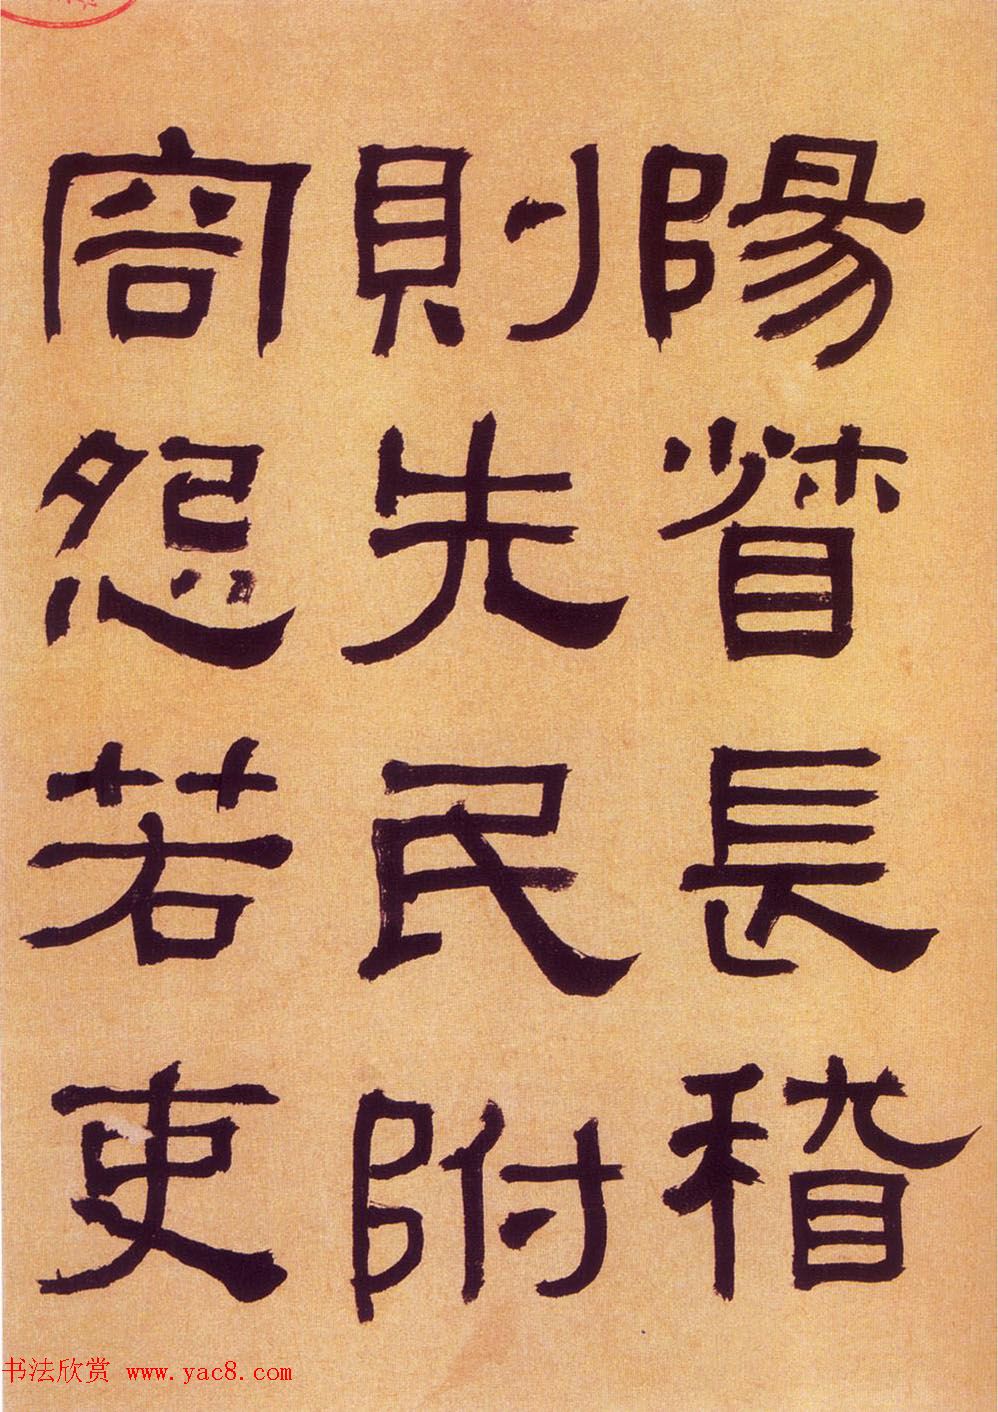 陽督長稽
則先民附
容怨若吏
书法欣赏 www.yac8.com